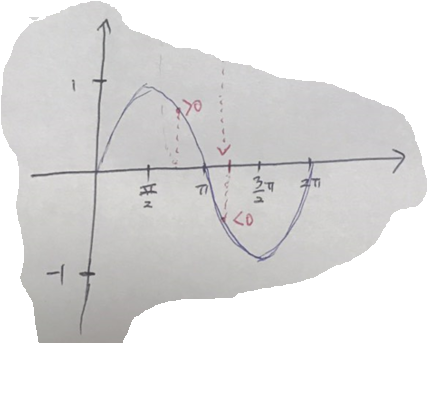 1
>0
π/2
π
3/2 π
2π
<0
-1